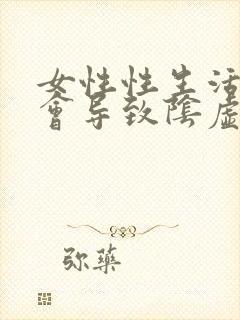 女性性生活
會导致陰虛
弥藥